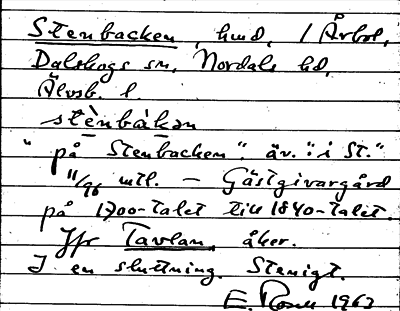 Stenbacken, hmd, 1 Årbol,
Dalskogs sn, Nordals hd,
Älvsb. l.
stènbàkən
"på Stenbacken", äv. "i St."
11/96 mtl. – Gästgivargård
på 1700-talet till 1840-talet.
Jfr Tavlan, åker.
I en sluttning. Stenigt.
E. 1963